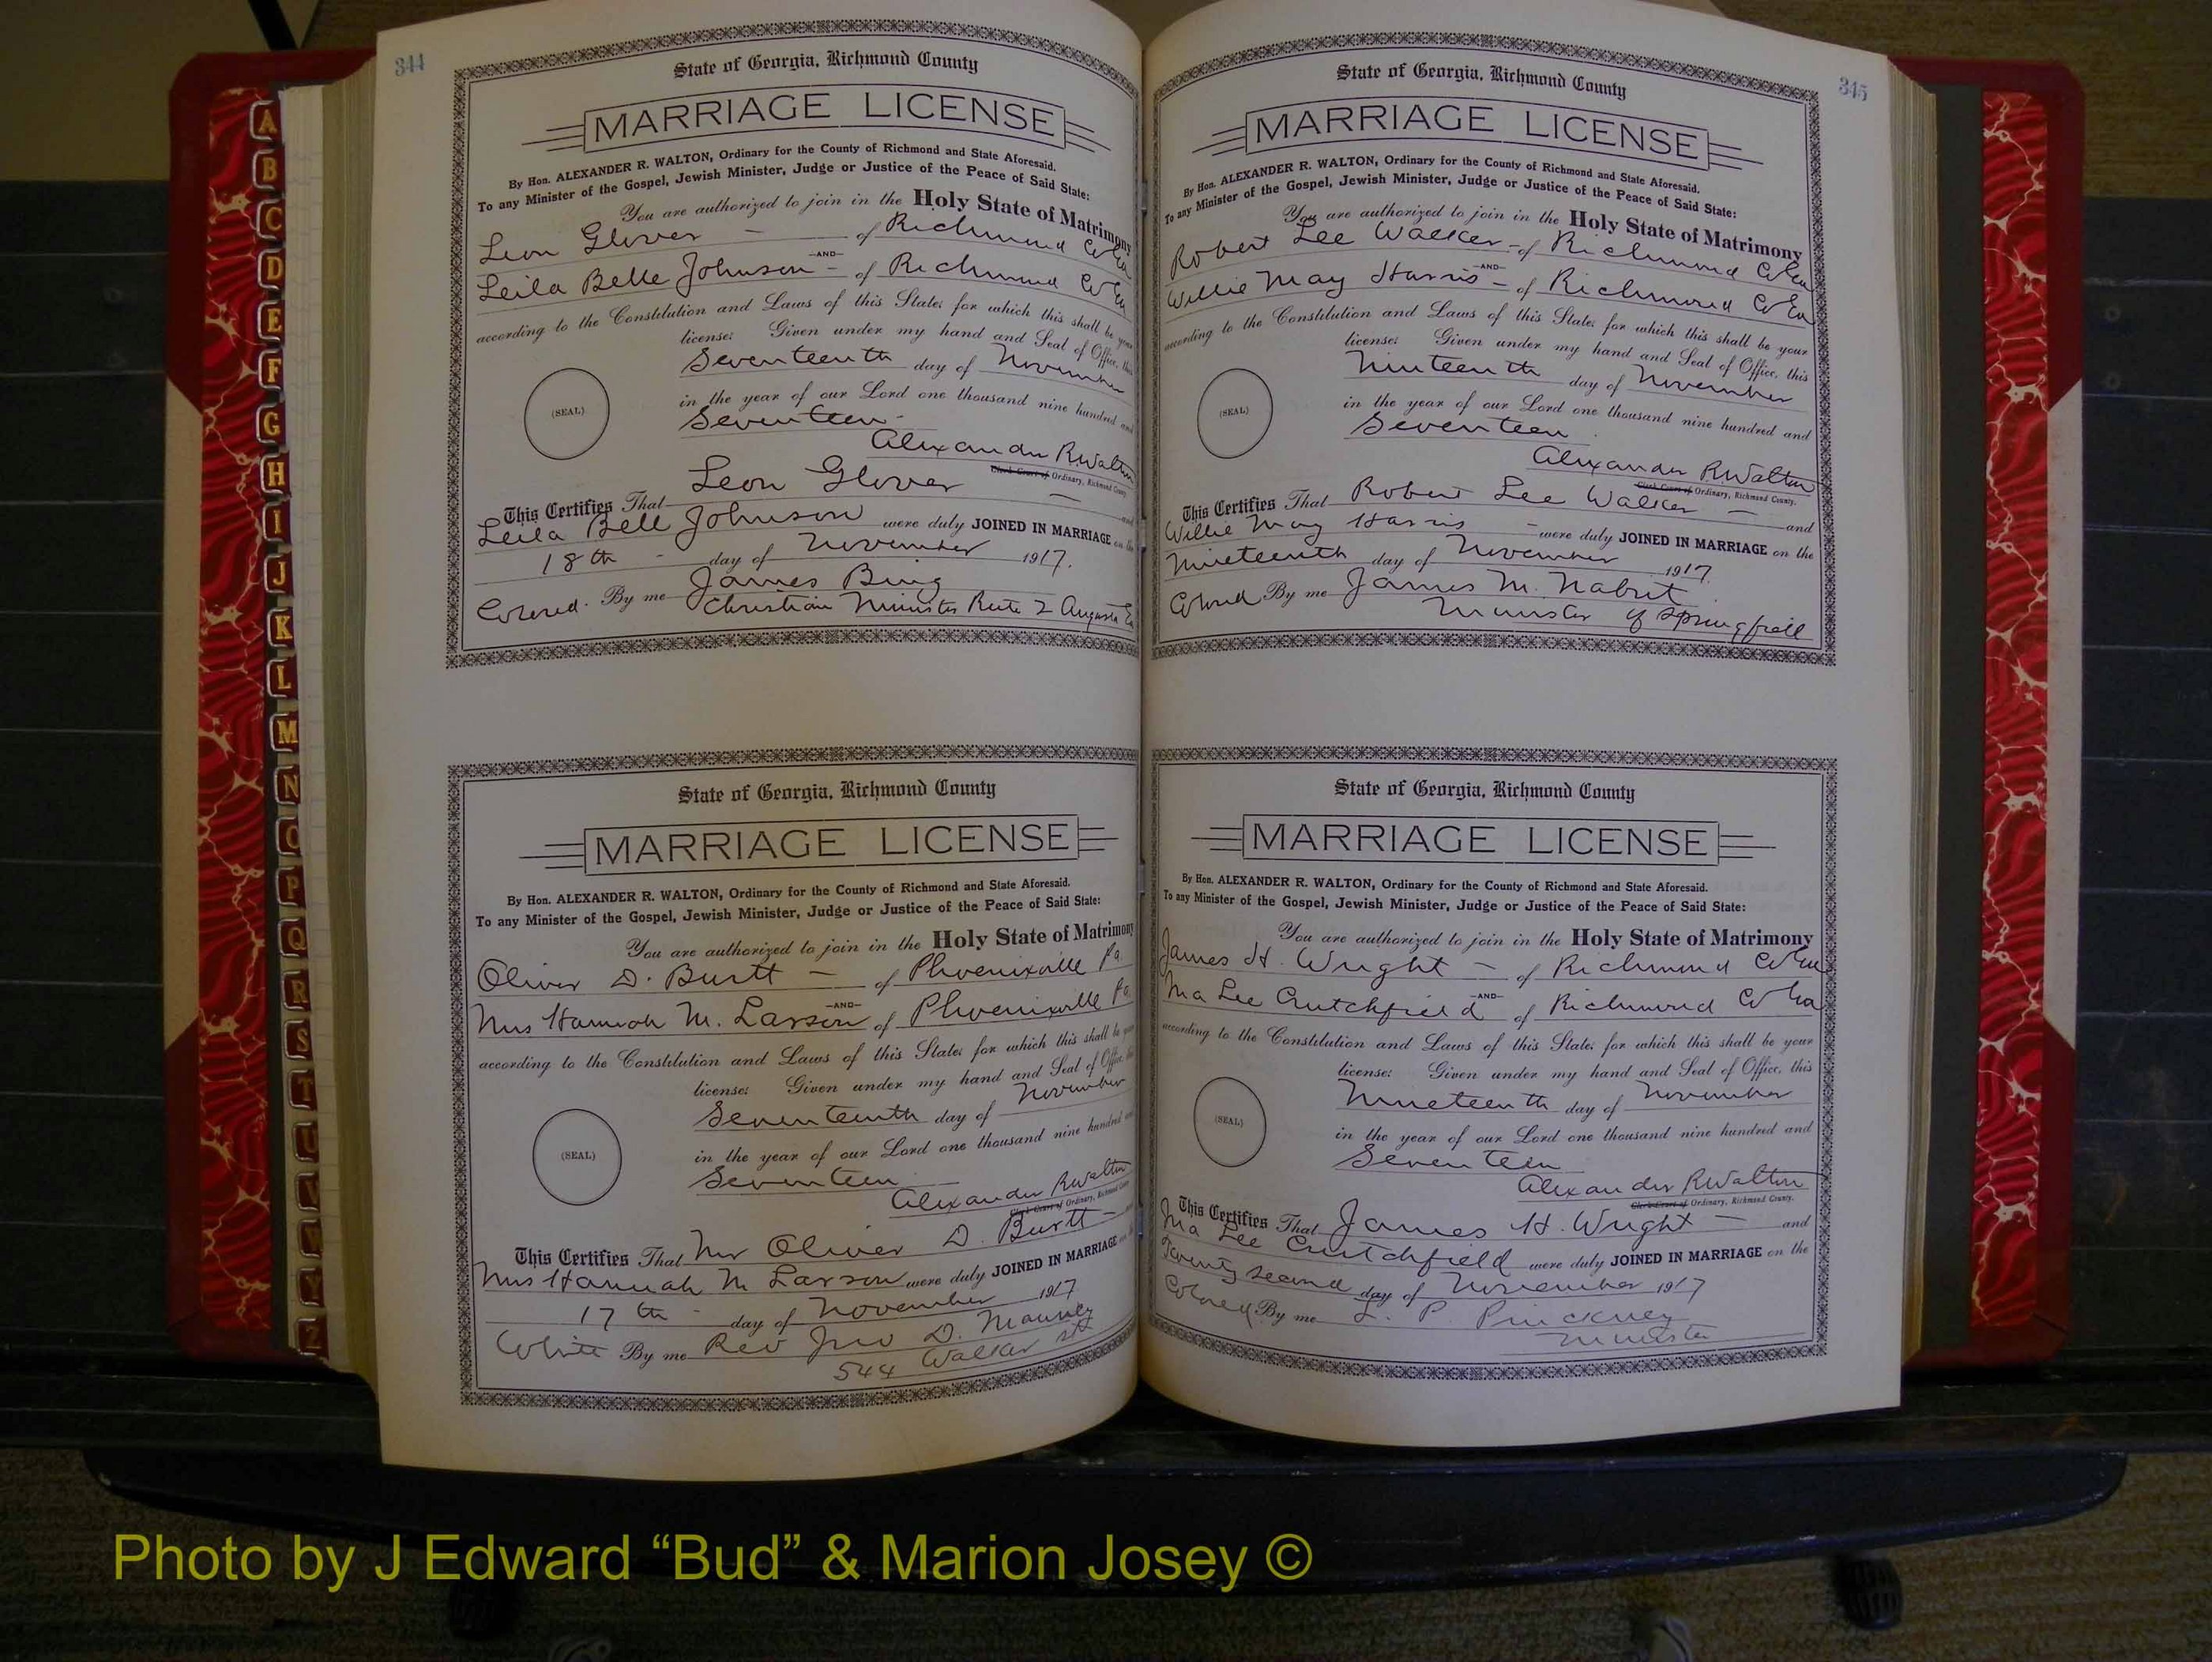 344
State of Georgia, Richmond County
MARRIAGE LICENSE
By Hon. ALEXANDER R. WALTON, Ordinary for the County of Richmond and State Aforesaid.
To any Minister of the Gospel, Jewish Minister, Judge or Justice of the Peace of Said State:
You are authorized to join in the Holy State of Matrimony
Leon Glover - of Richmond Co Ga
-AND-
Leila Belle Johnson - of Richmond Co Ga
according to the Constitution and Laws of this State; for which this shall be your
license: Given under my hand and Seal of Office, this
Seventeenth day of November
(SEAL)
in the year of our Lord one thousand nine hundred and
Seventeen -
Alexander R. Walton
Clerk Court of Ordinary, Richmond County
This Certifies That Leon Glover - and
Leila Bell Johnson were duly JOINED IN MARRIAGE on the
18th - day of November 1917.
Colored. By me James Bing
Christian Minister Route 2 Augusta Ga
State of Georgia, Richmond County
MARRIAGE LICENSE
By Hon. ALEXANDER R. WALTON, Ordinary for the County of Richmond and State Aforesaid.
To any Minister of the Gospel, Jewish Minister, Judge or Justice of the Peace of Said State:
You are authorized to join in the Holy State of Matrimony
Oliver D. Burtt - of Phoenixville Pa.
-AND-
Mrs Hannah M. Larson of Phoenixville Pa.
according to the Constitution and Laws of this State; for which this shall be your
license: Given under my hand and Seal of Office, this
Seventeenth day of November
(SEAL)
in the year of our Lord one thousand nine hundred and
Seventeen
Alexander R Walton
Clerk Court of Ordinary, Richmond County
This Certifies That Mr Oliver D. Burtt - and
Mrs Hannah M Larson were duly JOINED IN MARRIAGE on the
17th - day of November 1917
White By me Rev Jno D. Mauney
544 Walker st
345
State of Georgia, Richmond County
MARRIAGE LICENSE
By Hon. ALEXANDER R. WALTON, Ordinary for the County of Richmond and State Aforesaid.
To any Minister of the Gospel, Jewish Minister, Judge or Justice of the Peace of Said State:
You are authorized to join in the Holy State of Matrimony
Robert Lee Walker - of Richmond Co Ga
-AND-
Willie May Harris - of Richmond Co Ga
according to the Constitution and Laws of this State; for which this shall be your
license: Given under my hand and Seal of Office, this
Nineteenth day of November
(SEAL)
in the year of our Lord one thousand nine hundred and
Seventeen.
Alexander R. Walton
Clerk Court of Ordinary, Richmond County.
This Certifies That Robert Lee Walker - and
Willie May Harris - were duly JOINED IN MARRIAGE on the
Nineteenth day of November 1917.
Colored By me James M. Nabrit
Minister of Springfield
State of Georgia, Richmond County
MARRIAGE LICENSE
By Hon. ALEXANDER R. WALTON, Ordinary for the County of Richmond and State Aforesaid.
To any Minister of the Gospel, Jewish Minister, Judge or Justice of the Peace of Said State:
You are authorized to join in the Holy State of Matrimony
James H. Wright - of Richmond Co Ga
-AND-
Ma Lee Crutchfield of Richmond Co Ga
according to the Constitution and Laws of this State; for which this shall be your
license: Given under my hand and Seal of Office, this
Nineteenth day of November
(SEAL)
in the year of our Lord one thousand nine hundred and
Seventeen
Alexander R Walton
Clerk Court of Ordinary, Richmond County.
This Certifies That James H. Wright - and
Ma Lee Crutchfield were duly JOINED IN MARRIAGE on the
Twenty second day of November 1917
Colored By me L. P. Pinckney
Minister
A
B
C
D
E
F
G
H
I
J
K
L
M
N
O
P
Q
R
S
T
U
V
W
Y
Z
Photo by J Edward “Bud” & Marion Josey ©